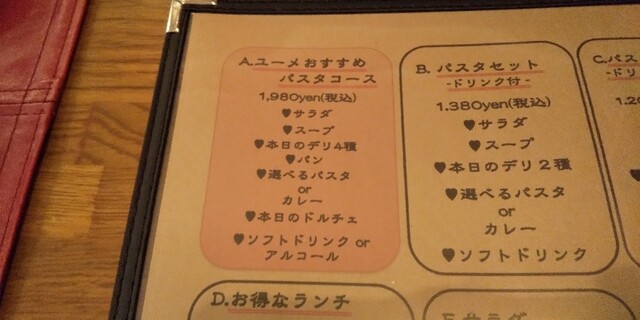 A.ユーメおすすめ
パスタコース
1,980yen(税込)
♥サラダ
♥スープ
♥本日のデリ4種
♥パン
♥選べるパスタ
or
カレー
♥本日のドルチェ
♥ソフトドリンク or
アルコール
B. パスタセット
-ドリンク付-
1.380yen(税込)
♥サラダ
♥スープ
♥本日のデリ2種
♥選べるパスタ
or
カレー
♥ソフトドリンク
C.パス
-ドリ
1.2
D.お得なランチ